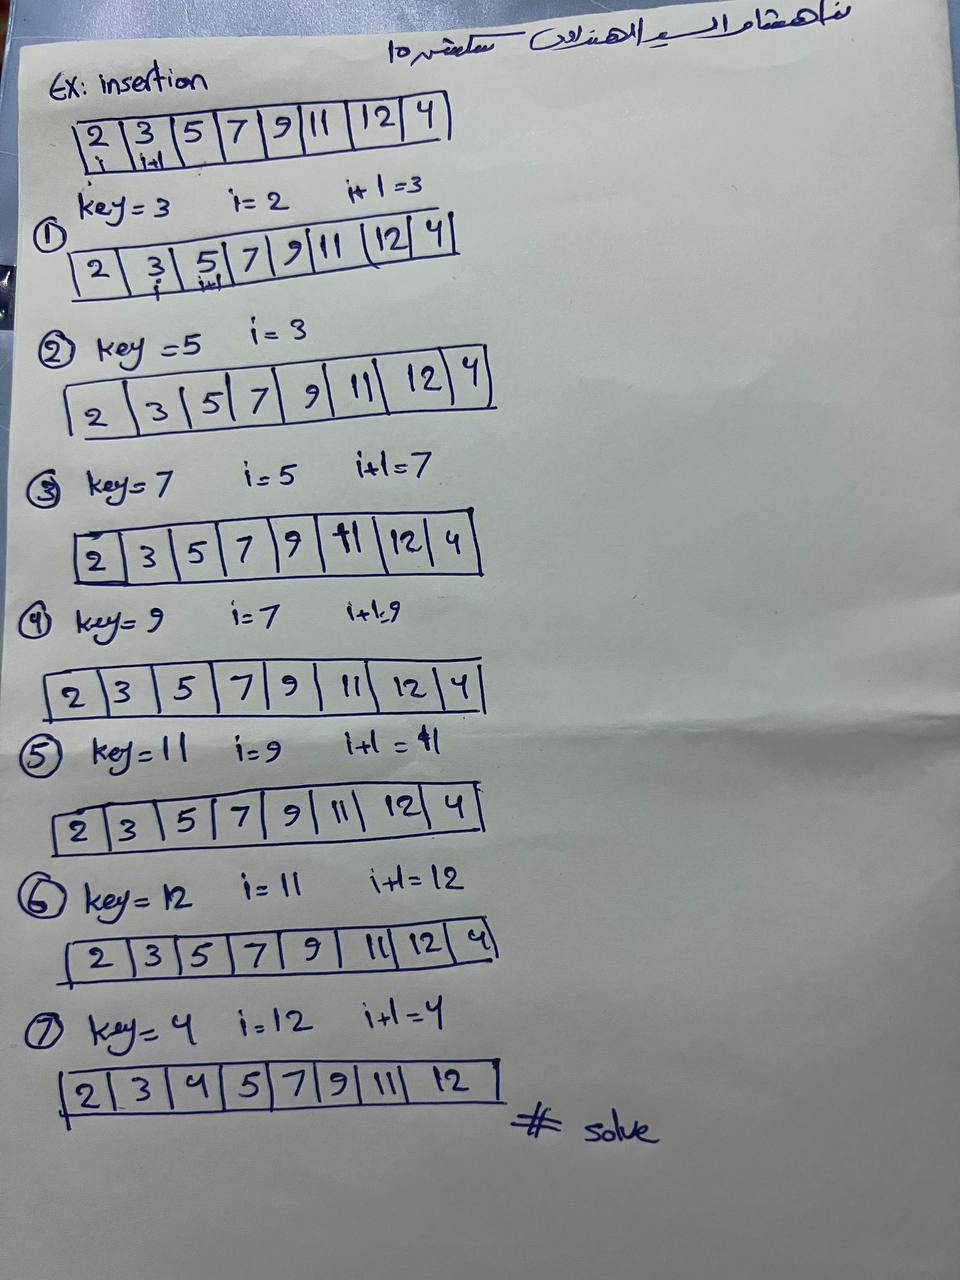 هشام السيد الهنداوى سكشن 10
Ex: insertion
2 3 5 7 9 11 12 4
i i+1
key = 3 i = 2 i+1 = 3
①
2 3 5 7 9 11 12 4
i i+1
② key = 5 i = 3
2 3 5 7 9 11 12 4
③ key = 7 i = 5 i+1 = 7
2 3 5 7 9 11 12 4
④ key = 9 i = 7 i+1 = 9
2 3 5 7 9 11 12 4
⑤ key = 11 i = 9 i+1 = 11
2 3 5 7 9 11 12 4
⑥ key = 12 i = 11 i+1 = 12
2 3 5 7 9 11 12 4
⑦ key = 4 i = 12 i+1 = 4
2 3 4 5 7 9 11 12
# solve